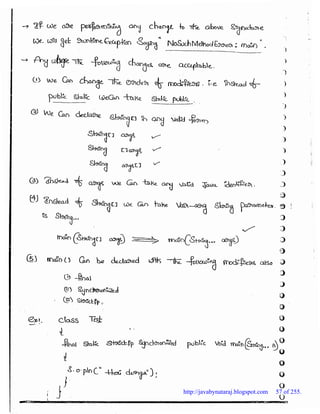 → If we are performing any change to the above Signature
we will get Runtime Exception Saying "NoSuchMethodError: main".
→ Any the following changes are acceptable.
(1) we can change the order of modifiers. i.e instead of
public static we can take static public.
(2) we can declare String[] in any valid form
String[] args ✓
String []args ✓
String args[] ✓
(3) instead of args we can take any valid java identifier.
(4) instead of String[] we can take var-arg String parameter.
is String...
main(String[] args) ⟹ main(String... args) ✓
(5) main() can be declared with the following modifiers also
(i) final
(ii) synchronized
(iii) strictfp.
Ex:. class Test
{
final static strictfp synchronized public void main(String... a)
{
S.o.pln("
}
}
http://javabynataraj.blogspot.com 57 of 255.